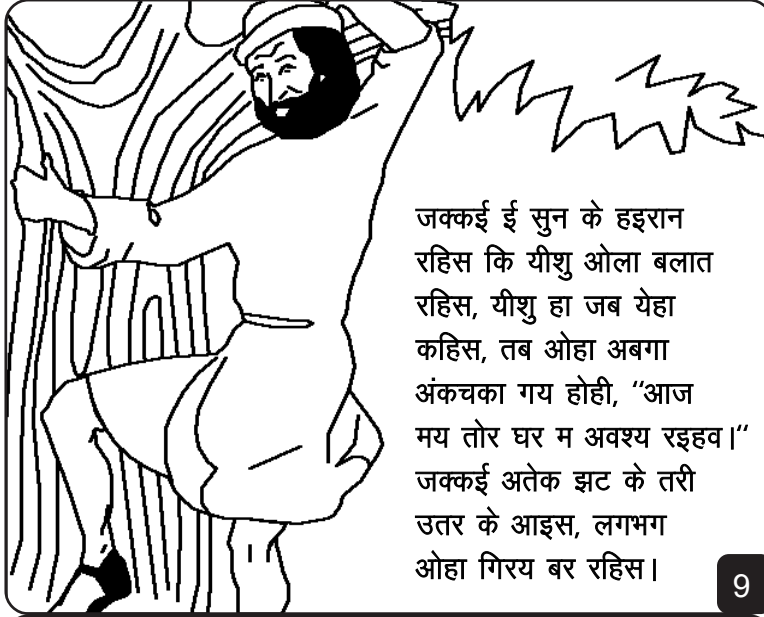 जक्कई ई सुन के हइरान
रहिस कि यीशु ओला बलात
रहिस, यीशु हा जब येहा
कहिस, तब ओहा अबगा
अंकचका गय होही, “आज
मय तोर घर म अवश्य रइहव।“
जक्कई अतेक झट के तरी
उतर के आइस, लगभग
ओहा गिरय बर रहिस।
9